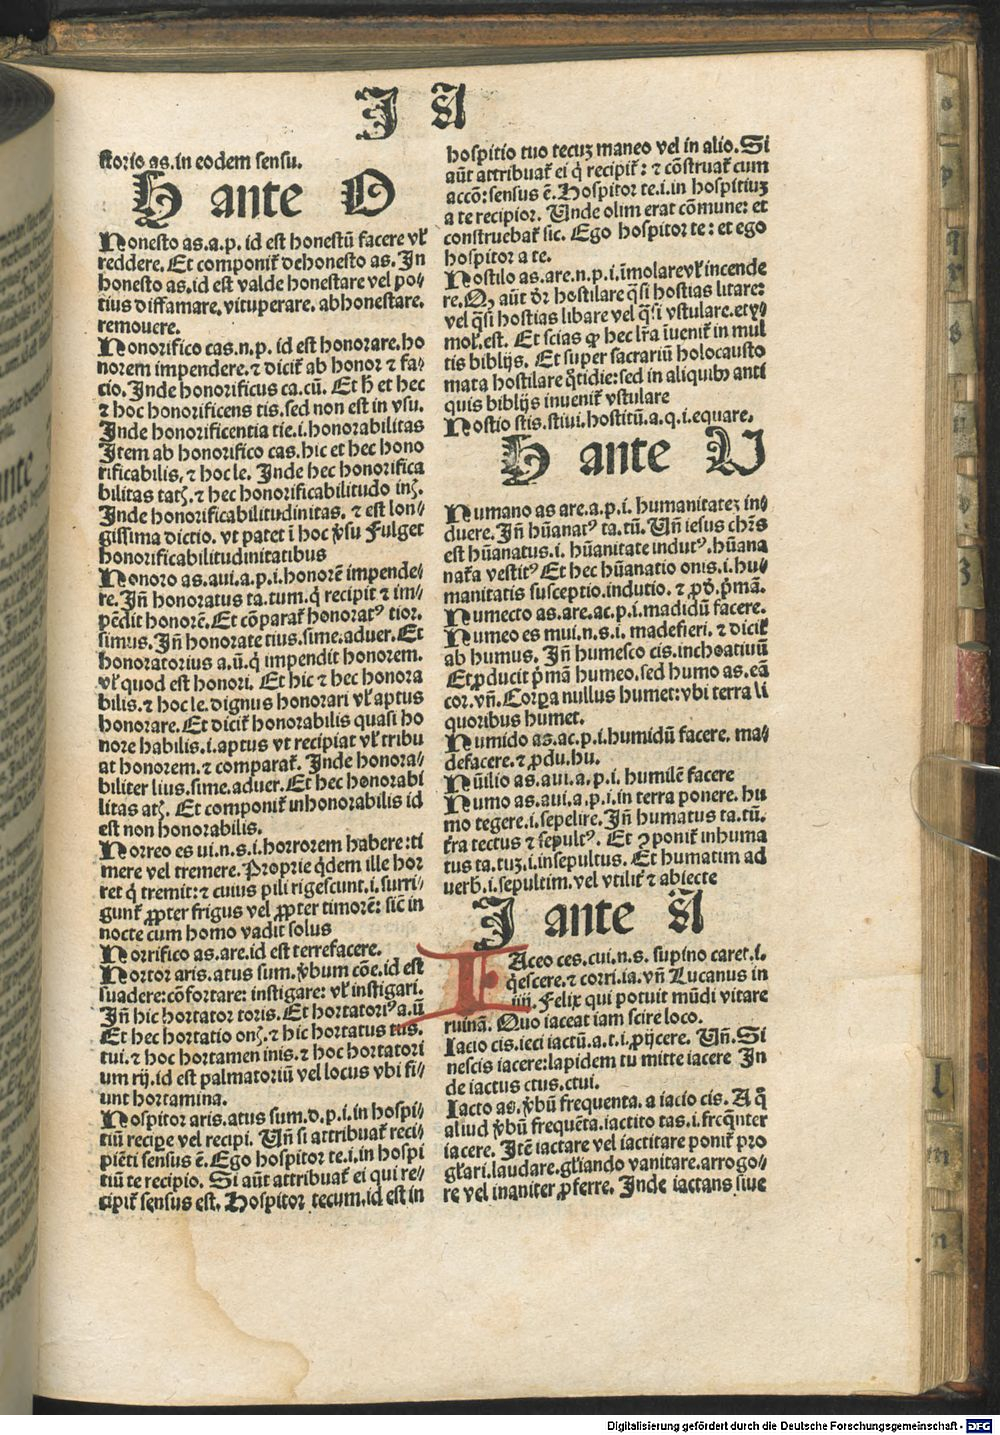 J A
storio as.in eodem sensu.
H ante O
Honesto as.a.p. id est honestũ facere vl'
reddere. Et componit᷑ dehonesto as. In
honesto as.id est valde honestare vel po⸗
tius diffamare, vituperare. abhonestare.
remouere.
Honorifico cas.n.p. id est honorare.ho
norem impendere. ⁊ dicit᷑ ab honor ⁊ fa⸗
cio. Inde honorificus ca.cũ. Et hͨ et hec
⁊ hoc honorificens tis.sed non est in vsu.
Inde honorificentia tie.i.honorabilitas
Item ab honorifico cas.hic et hec hono
rificabilis, ⁊ hoc le. Inde hec honorifica
bilitas tatꝭ. ⁊ hec honorificabilitudo inꝭ.
Inde honorificabilitudinitas. ⁊ est lon⸗
gissima dictio. vt patet ĩ hoc v̓su Fulget
honorificabilitudinitatibus
Honoro as.aui.a.p.i.honorẽ impende⸗
re. Iñ honoratus ta.tum.q̇ recipit ⁊ im⸗
pẽdit honorẽ. Et cõparat᷑ honoratꝰ tior.
simus. Iñ honorate tius.sime.aduer. Et
honoratorius a.ũ.q̇ impendit honorem.
vl' quod est honori. Et hic ⁊ hec honora
bilis.⁊ hoc le.dignus honorari vl' aptus
honorare. Et dicit᷑ honorabilis quasi ho
nore habilis.i.aptus vt recipiat vl' tribu
at honorem.⁊ comparat᷑. Inde honora⸗
biliter lius.sime.aduer. Et hec honorabi
litas atꝭ. Et componit᷑ inhonorabilis id
est non honorabilis.
Horreo es ui.n.s.i.horrorem habere:ti
mere vel tremere. Proprie q̇dem ille hor
ret q̇ tremit: ⁊ cuius pili rigescunt.i.surri⸗
gunt᷑ ꝓpter frigus vel ꝓpter timorẽ: sic̃ in
nocte cum homo vadit solus
Horrifico as.are.id est terrefacere.
Hortor aris.atus sum.v̓bum cõe.id est
suadere:cõfortare: instigare: vl' instigari.
Iñ hic hortator toris. Et hortatoriꝰ a.ũ
Et hec hortatio onꝭ. ⁊ hic hortatus tus.
tui. ⁊ hoc hortamen inis. ⁊ hoc hortatori
um rij. id est palmatoriũ vel locus vbi fi⸗
unt hortamina.
Hospitor aris.atus sum.d.p.i.in hospi⸗
tiũ recipe vel recipi. Uñ si attribuat᷑ reci⸗
piẽti sensus ẽ. Ego hospitor te.i.in hospi
tiũ te recipio. Si aũt attribuat᷑ ei qui re⸗
cipit᷑ sensus est. Hospitor tecum.id est in
hospitio tuo tecuꝫ maneo vel in alio. Si
aũt attribuat᷑ ei q̇ recipit᷑: ⁊ cõstruat᷑ cum
accõ: sensus ẽ. Hospitor te.i.in hospitiuꝫ
a te recipior. Unde olim erat cõmune: et
construebat᷑ sic. Ego hospitor te: et ego
hospitor a te.
Hostilo as.are.n.p.i.ĩmolare vl' incende
re. Qꝫ aũt dr̃ hostilare q̃si hostias litare:
vel q̃si hostias libare vel q̃si vstulare.ety⸗
mol.est. Et scias ꝙ hec lr̃a ĩuenit᷑ in mul
tis biblijs. Et super sacrariũ holocausto
mata hostilare q̃tidie:sed in aliquibꝫ anti
quis biblijs inuenit᷑ vstulare
Hostio stis.stiui.hostitũ.a.q.i.equare.
H ante U
Humano as are.a.p.i. humanitateꝫ in⸗
duere. Iñ hũanatꝰ ta.tũ. Uñ iesus chr̃s
est hũanatus.i. hũanitate indutꝰ. hũana
nat᷑a vestitꝰ Et hec hũanatio onis.i.hu⸗
manitatis susceptio.indutio. ⁊ ꝓd̓. p̃mã.
Humecto as.are.ac.p.i.madidũ facere.
Humeo es mui.n.s.i. madefieri. ⁊ dicit᷑
ab humus. Iñ humesco cis.inchoatiuũ
Et ꝓducit p̃mã humeo.sed humo as.eã
cor.vñ. Corꝑa nullus humet:vbi terra li
quoribus humet.
Humido as.ac.p.i.humidũ facere. ma⸗
defacere. ⁊ ꝓdu.hu.
Hũilio as.aui.a.p.i. humilẽ facere
Humo as.aui.a.p.i.in terra ponere. hu
mo tegere.i.sepelire. Iñ humatus ta.tũ.
t᷑ra tectus ⁊ sepultꝰ. Et ꝯponit᷑ inhuma
tus ta.tuꝫ.i.insepultus. Et humatim ad
uerb̓.i.sepultim.vel vtilit᷑ ⁊ abiecte
J ante A
I Aceo ces.cui.n.s. supino caret.i.
q̇escere.⁊ corri.ia.vñ Lucanus in
iiij. Felix qui potuit mũdi vitare
ruinã. Quo iaceat iam scire loco.
Iacio cis.ieci iactũ.a.t.i.ꝓijcere. Uñ. Si
nescis iacere:lapidem tu mitte iacere In
de iactus ctus.ctui.
Iacto as.v̓bũ frequenta. a iacio cis. A q̊
aliud v̓bũ frequẽta.iactito tas.i.freq̃nter
iacere. Itẽ iactare vel iactitare ponit᷑ pro
gl'ari.laudare.gl'iando vanitare.arrogo⸗
re vel inaniter ꝓferre. Inde iactans siue
l
m
n
Digitalisierung gefördert durch die Deutsche Forschungsgemeinschaft - DFG